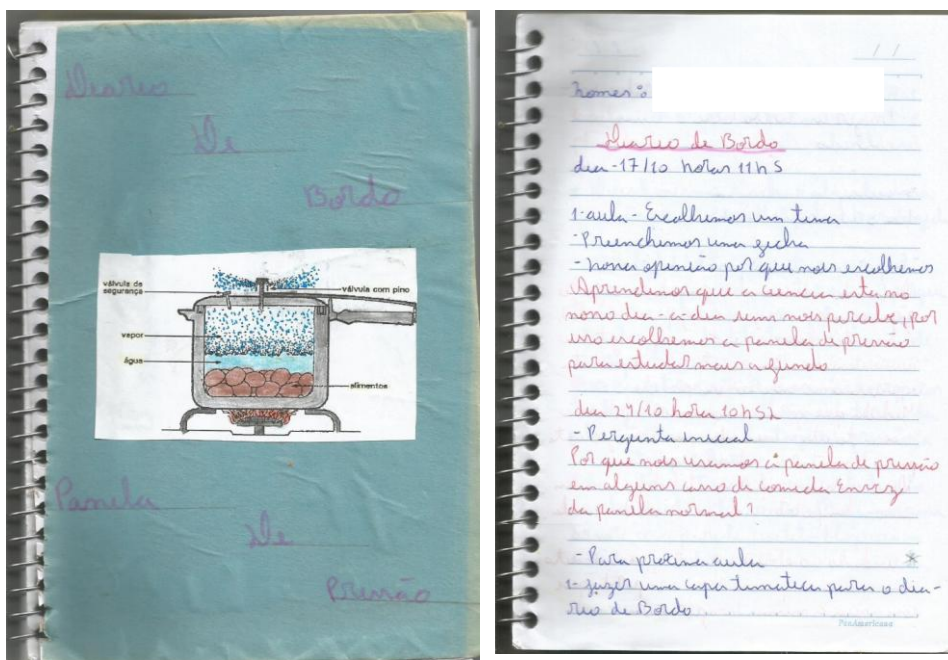 Diareo
De
Bordo
válvula de
segurança
válvula com pino
vapor
água
alimentos
Panela
De
Pressão
/ /
nomes:
Diareo de Bordo
dia - 17/10 horas 11h 5
1-aula - Escolhemos um tema
- Preenchemos uma ficha
- nossa openião por que nois escolhemos
Aprendemos que a ciencia esta no
nosso dia-a-dia sem nois percebe, por
isso escolhemos a panela de pressão
para estudar mais a fundo
dia 24/10 hora 10h52
- Pergunta inicial
Por que nois usamos a panela de pressão
em alguns caso de comeda Envez
da panela normal?
- Para proxima aula *
1- fazer uma capa tematica para o dia-
reo de Bordo
PanAmericana